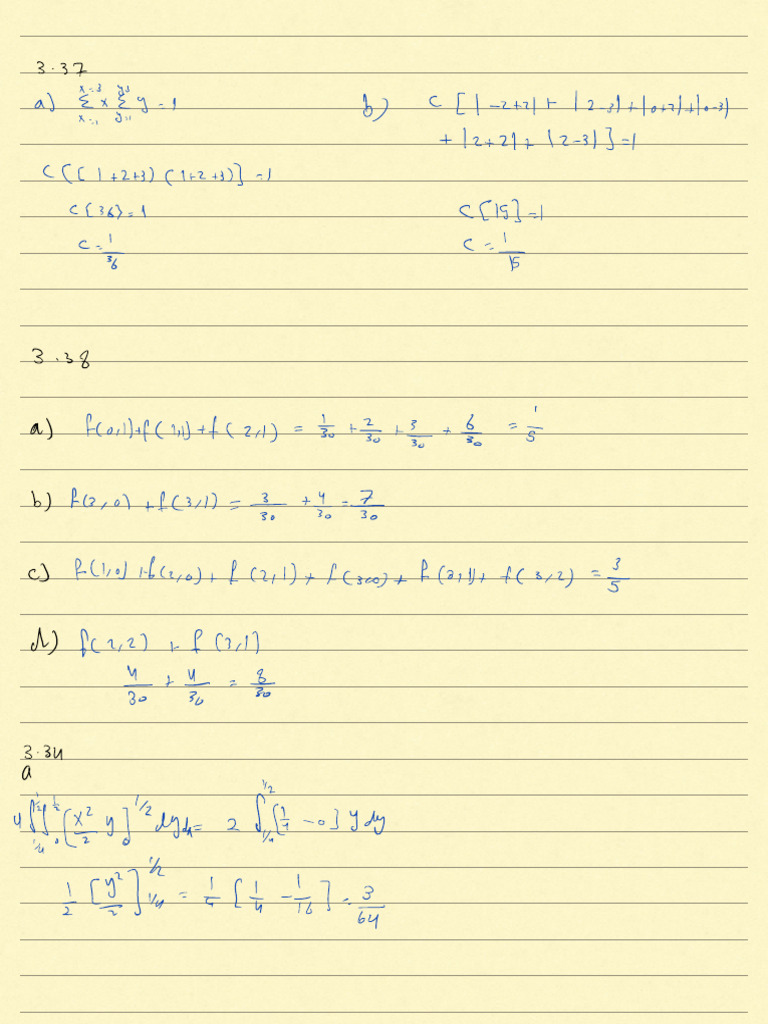 3.37
a) Σ_{x=1}^{x=3} x Σ_{y=1}^{y=3} y = 1
C([1+2+3)(1+2+3)] = 1
C{36} = 1
C = 1/36
b) C [|-2+2| + |2-3| + |0+2| + |0-3|
+ |2+2| + |2-3|] = 1
C[15] = 1
C = 1/15
3.38
a) f(0,1)+f(1,1)+f(2,1) = 1/30 + 2/30 + 3/30 + 6/30 = 1/5
b) f(3,0) + f(3,1) = 3/30 + 4/30 = 7/30
c) f(1,0) + f(2,0) + f(2,1) + f(3,0) + f(3,1) + f(3,2) = 3/5
d) f(2,2) + f(3,1)
4/30 + 4/30 = 8/30
3.34
a
4 ∫_{1/4}^{1/2} ∫_0^{1/2} [x²/2 y]_0^{1/2} dy dx = 2 ∫_{1/4}^{1/2} [1/4 - 0] y dy
1/2 [y²/2]_{1/4}^{1/2} = 1/4 [1/4 - 1/16] = 3/64